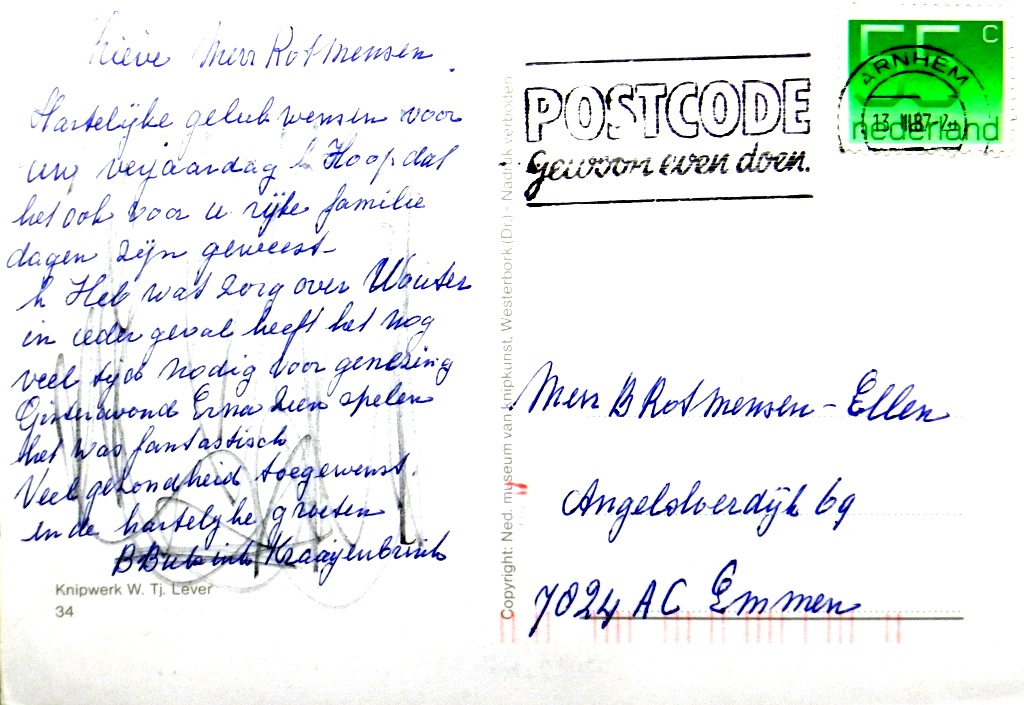 Lieve Mevr Rotmensen.
Hartelijke gelukwensen voor
uw verjaardag k Hoop dat
het ook voor u rijke familie
dagen zijn geweest
k Heb wat zorg over Wouter
in ieder geval heeft het nog
veel tijd nodig voor genezing
Gisteravond Erna zien spelen
het was fantastisch
Veel gezondheid toegewenst.
en de hartelijke groeten
Kraayenbrink
Knipwerk W. Tj. Lever
34
Copyright: Ned. museum van knipkunst, Westerbork (Dr.) - Nadruk verboden
POSTCODE
gewoon even doen.
55 c
nederland
ARNHEM
13 III 87
Mevr B Rotmensen - Ellen
Angelsloerdijk 69
7824 AC Emmen